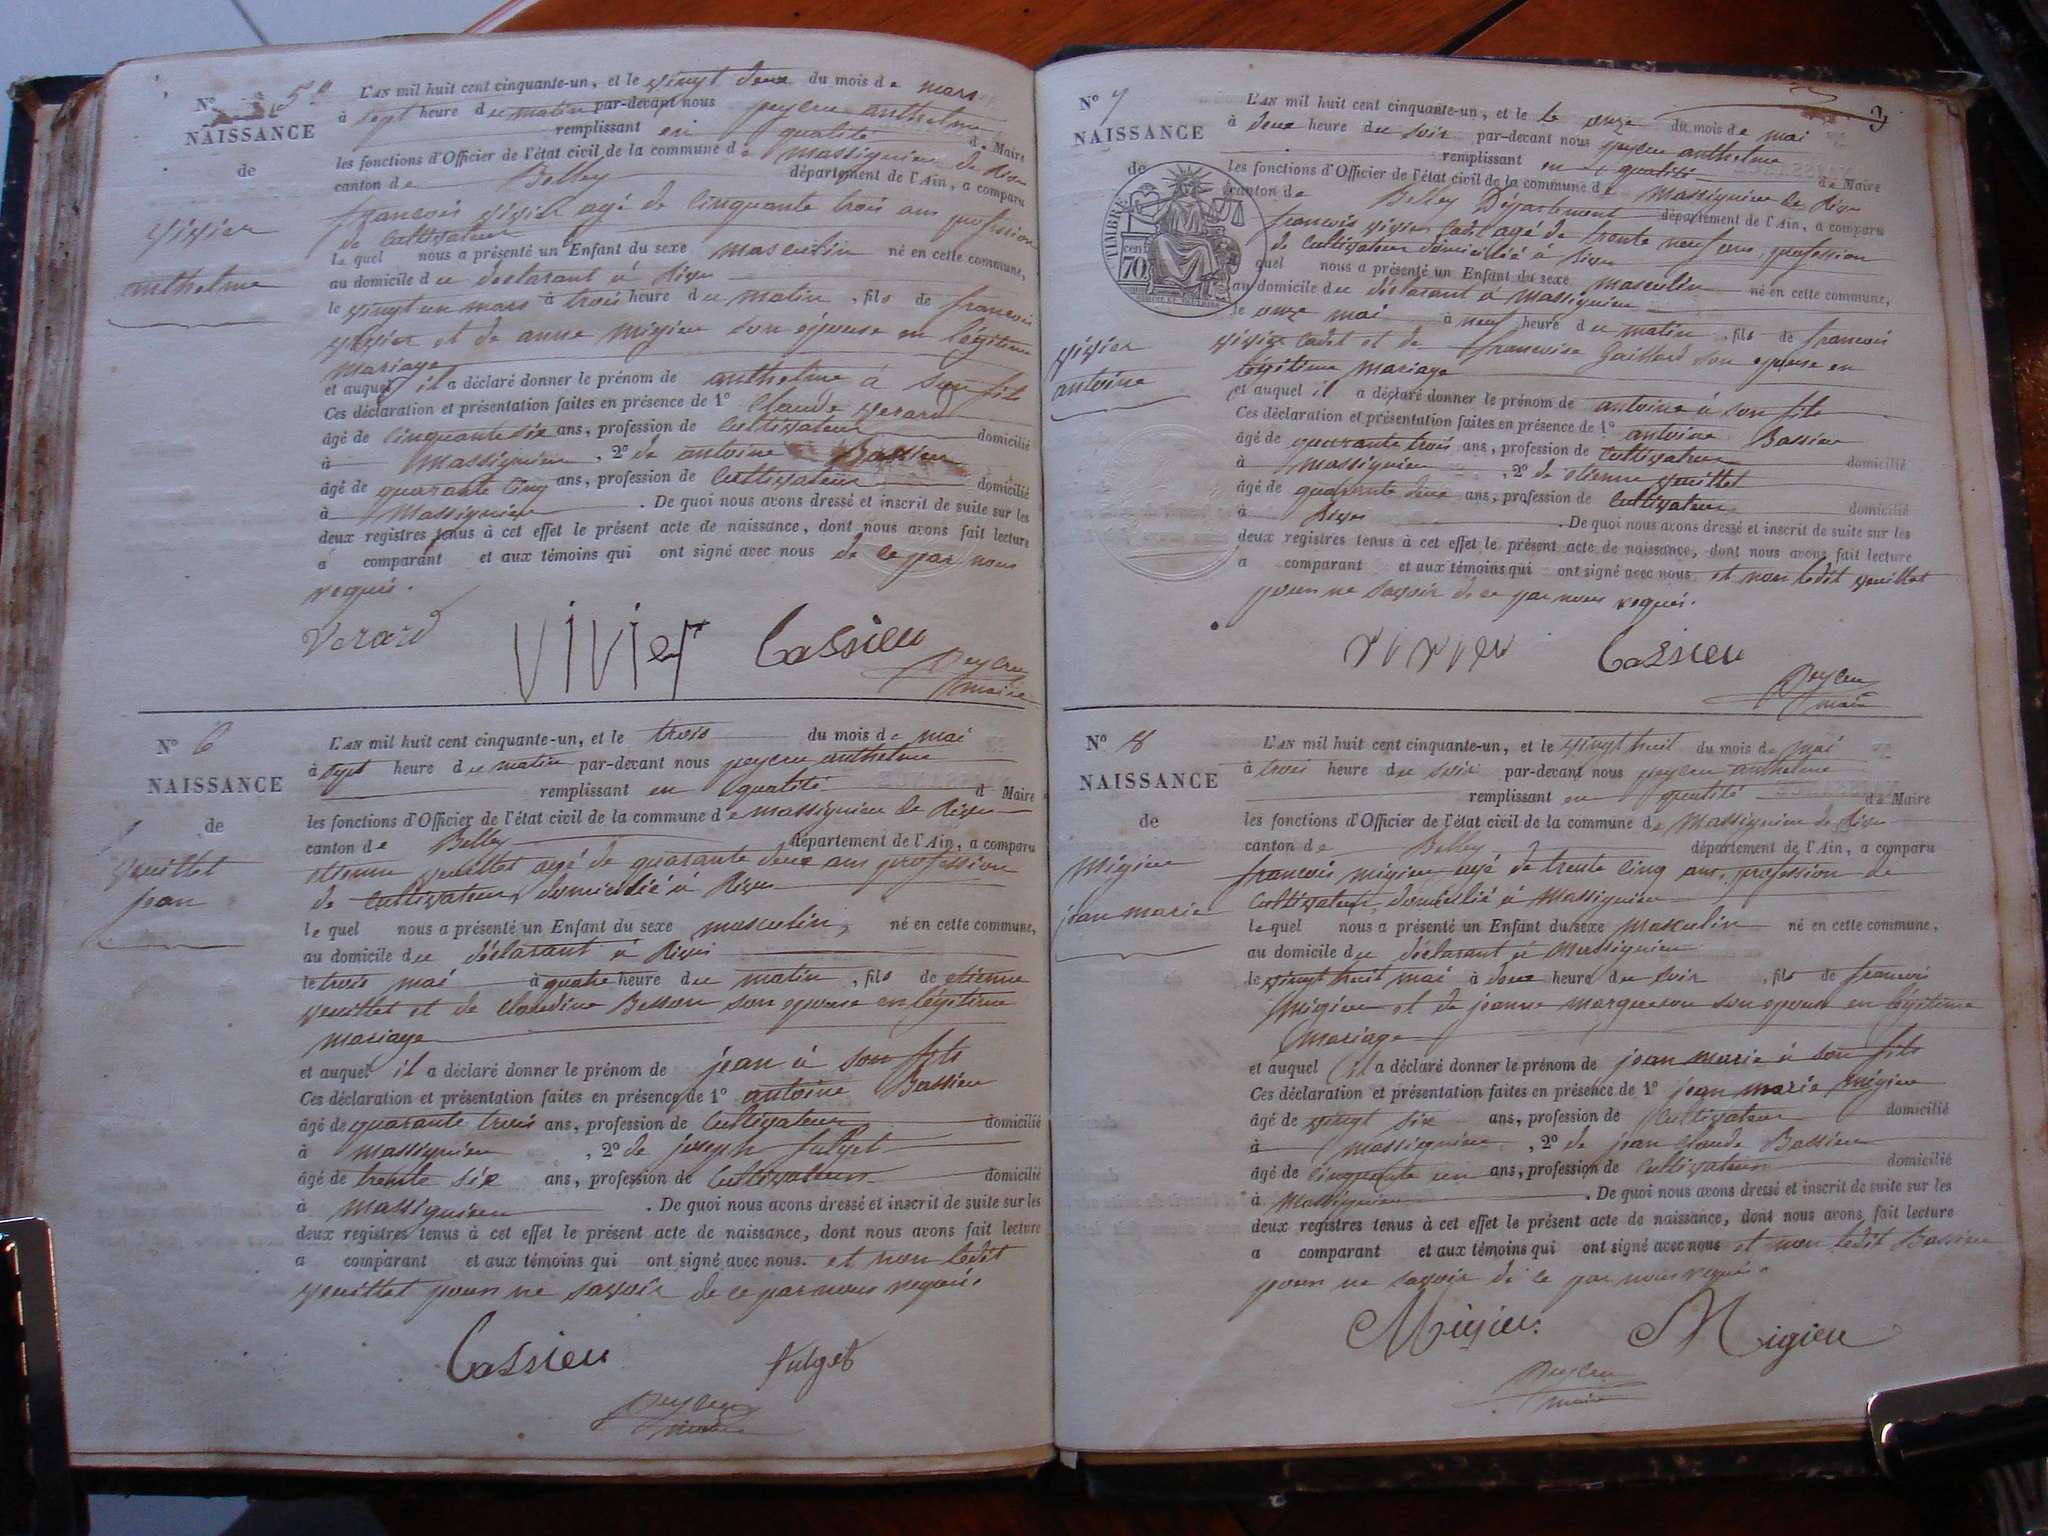 N° 5e
NAISSANCE
de
vivier
anthelme
L'AN mil huit cent cinquante-un, et le vingt deux du mois de mars
à sept heure du matin par-devant nous peyeru anthelme
remplissant en qualité de Maire
les fonctions d'Officier de l'état civil de la commune de massignieu de Rives
canton de Belley département de l'Ain, a comparu
francois vivier agé de cinquante trois ans profession
de cultivateur
le quel nous a présenté un Enfant du sexe masculin né en cette commune,
au domicile du déclarant à Rives
le vingt un mars à trois heure du matin, fils de francois
vivier et de anne migieu son épouse en légitime
mariage
et auquel il a déclaré donner le prénom de anthelme à son fils
Ces déclaration et présentation faites en présence de 1° Claude verard
âgé de cinquante six ans, profession de cultivateur domicilié
à massignieu, 2° de antoine Cassieu
âgé de quarante cinq ans, profession de cultivateur domicilié
à Massignieu. De quoi nous avons dressé et inscrit de suite sur les
deux registres tenus à cet effet le présent acte de naissance, dont nous avons fait lecture
à comparant et aux témoins qui ont signé avec nous de ce par nous
requis.
Verard vivier Cassieu
peyeru
maire
N° 6
NAISSANCE
de
vuillet
jean
L'AN mil huit cent cinquante-un, et le trois du mois de mai
à sept heure du matin par-devant nous peyeru anthelme
remplissant en qualité d Maire
les fonctions d'Officier de l'état civil de la commune de massignieu de Rives
canton de Belley département de l'Ain, a comparu
etienne vuillet agé de quarante deux ans profession
de cultivateur, domicilié à Rives
le quel nous a présenté un Enfant du sexe masculin, né en cette commune,
au domicile du déclarant à Rives
le trois mai à quatre heure du matin, fils de etienne
vuillet et de claudine Besson son epouse en légitime
mariage
et auquel il a déclaré donner le prénom de jean à son fils
Ces déclaration et présentation faites en présence de 1° antoine Cassieu
âgé de quarante trois ans, profession de cultivateur domicilié
à massignieu, 2° de joseph fulget
âgé de trente six ans, profession de cultivateur domicilié
à massignieu. De quoi nous avons dressé et inscrit de suite sur les
deux registres tenus à cet effet le présent acte de naissance, dont nous avons fait lecture
a comparant et aux témoins qui ont signé avec nous. et non ledit
vuillet pour ne savoir de ce par nous requis.
Cassieu fulget
peyeru
maire
3
N° 7
NAISSANCE
de
TIMBRE
70 cent
vivier
antoine
L'AN mil huit cent cinquante-un, et le le onze du mois de mai
à deux heure du soir par-devant nous peyeru anthelme
remplissant en qualité de Maire
les fonctions d'Officier de l'état civil de la commune de Massignieu de Rives
canton de Belley Département département de l'Ain, a comparu
francois vivier cadet agé de trente neuf ans, profession
de cultivateur domicilié à Rives
quel nous a présenté un Enfant du sexe masculin né en cette commune,
au domicile du déclarant à Massignieu
le onze mai à neuf heure du matin, fils de francois
vivier cadet et de francoise Gaillard son epouse en
légitime mariage
et auquel il a déclaré donner le prénom de antoine à son fils
Ces déclaration et présentation faites en présence de 1° antoine Cassieu
âgé de quarante trois ans, profession de cultivateur domicilié
à Massignieu, 2° de etienne vuillet
âgé de quarante deux ans, profession de cultivateur domicilié
à Rives. De quoi nous avons dressé et inscrit de suite sur les
deux registres tenus à cet effet le présent acte de naissance, dont nous avons fait lecture
a comparant et aux témoins qui ont signé avec nous et non ledit vuillet
pour ne savoir de ce par nous requis.
vivier Cassieu
peyeru
maire
N° 8
NAISSANCE
de
Migieu
jean marie
L'AN mil huit cent cinquante-un, et le vingt huit du mois de mai
à trois heure du soir par-devant nous peyeru anthelme
remplissant en qualité de Maire
les fonctions d'Officier de l'état civil de la commune de Massignieu de Rives
canton de Belley département de l'Ain, a comparu
francois migieu agé de trente cinq ans, profession de
cultivateur, domicilié à Massignieu
le quel nous a présenté un Enfant du sexe masculin né en cette commune,
au domicile du déclarant à Massignieu
le vingt huit mai à deux heure du soir, fils de francois
migieu et de jeanne marguerou son epouse en légitime
mariage
et auquel il a déclaré donner le prénom de jean marie à son fils
Ces déclaration et présentation faites en présence de 1° jean marie migieu
âgé de vingt six ans, profession de cultivateur domicilié
à massignieu, 2° de jean claude Cassieu
âgé de cinquante un ans, profession de cultivateur domicilié
à Massignieu. De quoi nous avons dressé et inscrit de suite sur les
deux registres tenus à cet effet le présent acte de naissance, dont nous avons fait lecture
a comparant et aux témoins qui ont signé avec nous et non ledit Cassieu
pour ne savoir de ce par nous requis.
Migieu. Migieu
peyeru
maire